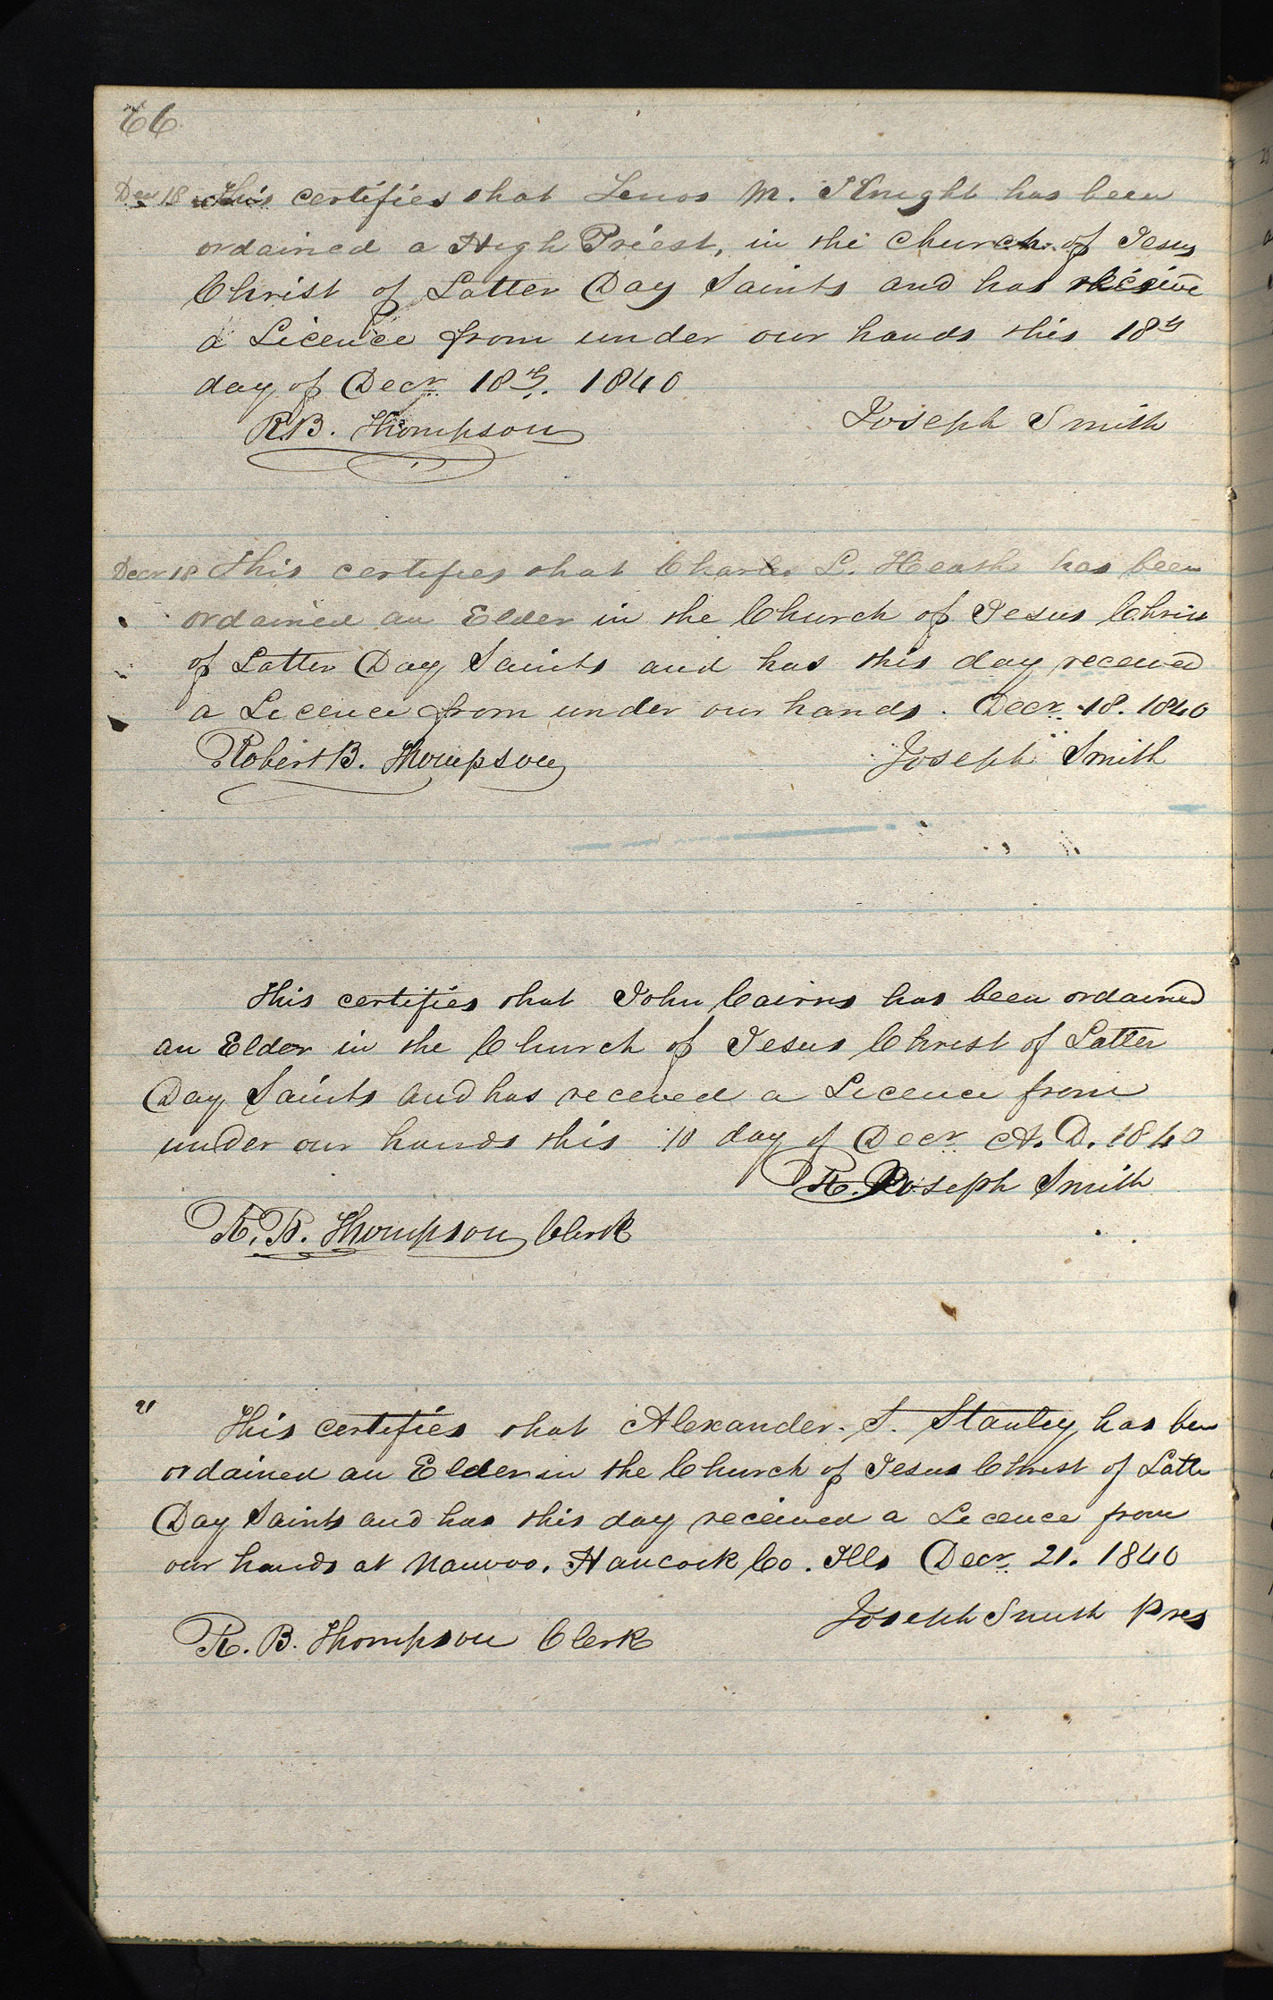 66
Decr 18 This certifies that Lenos M. Knight has been
ordained a High Priest, in the church of Jesus
Christ of Latter Day Saints and has receive
a Licence from under our hands this 18th
day of Decr 18th. 1840
R.B. Thompson Joseph Smith
Decr 18 This certifies that Charles L. Heath has been
ordained an Elder in the Church of Jesus Chris
of Latter Day Saints and has this day received
a Licence from under our hands. Decr. 18. 1840
Robert B. Thompson Joseph Smith
This certifies that John Cairns has been ordained
an Elder in the Church of Jesus Christ of Latter
Day Saints and has receved a Licence from
under our hands this 10 day of Decr A. D. 1840
R. Joseph Smith
R. B. Thompson Clerk
" This certifies that Alexander. S. Stanley has ben
ordained an Elder in the Church of Jesus Christ of Latte
Day Saints and has this day received a Licence from
our hands at Nauvoo, Hancock Co. Ills Decr. 21. 1840
Joseph Smith Pres
R. B. Thompson Clerk